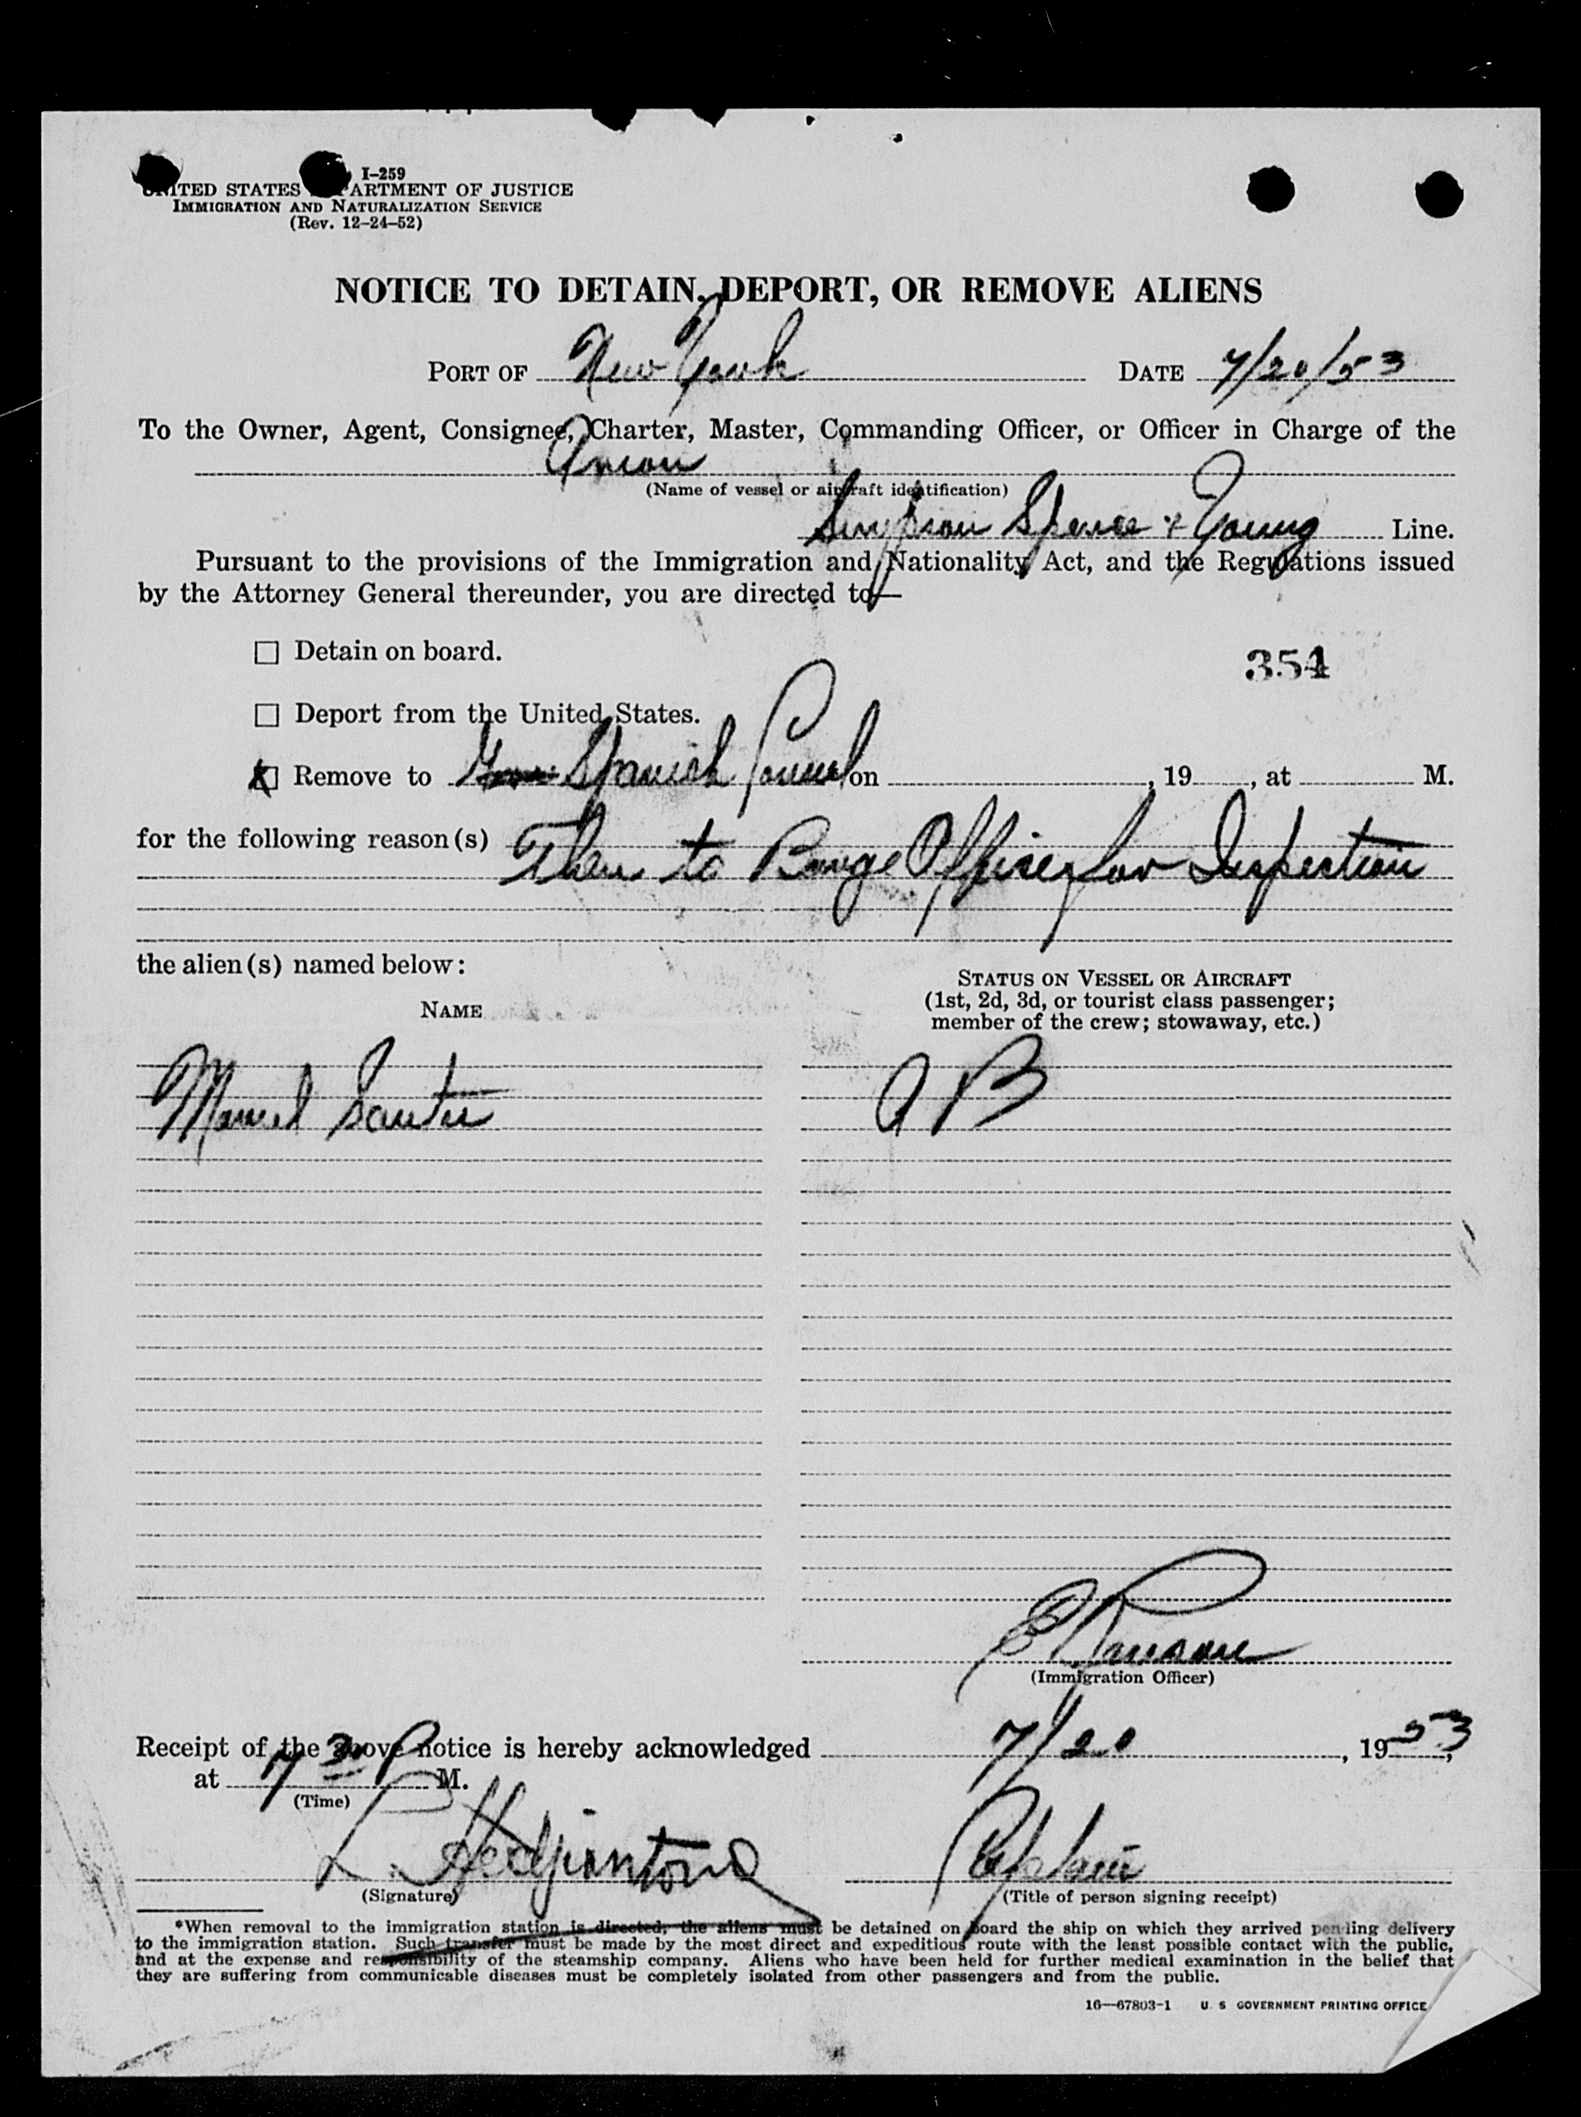 I-259
UNITED STATES DEPARTMENT OF JUSTICE
IMMIGRATION AND NATURALIZATION SERVICE
(Rev. 12-24-52)
NOTICE TO DETAIN, DEPORT, OR REMOVE ALIENS
PORT OF New York DATE 7/20/53
To the Owner, Agent, Consignee, Charter, Master, Commanding Officer, or Officer in Charge of the
(Name of vessel or aircraft identification)
Simpson Spence & Young Line.
Pursuant to the provisions of the Immigration and Nationality Act, and the Regulations issued
by the Attorney General thereunder, you are directed to—
Detain on board.
354
Deport from the United States.
X Remove to Spanish Consul on , 19 , at M.
for the following reason(s) Then to Barge Office for Inspection
the alien(s) named below:
STATUS ON VESSEL OR AIRCRAFT
(1st, 2d, 3d, or tourist class passenger;
member of the crew; stowaway, etc.)
NAME
Manuel AB
(Immigration Officer)
Receipt of the above notice is hereby acknowledged 7/20, 1953,
at 7 30 P M.
(Time)
Captain
(Signature) (Title of person signing receipt)
*When removal to the immigration station is directed, the aliens must be detained on board the ship on which they arrived pending delivery
to the immigration station. Such transfer must be made by the most direct and expeditious route with the least possible contact with the public,
and at the expense and responsibility of the steamship company. Aliens who have been held for further medical examination in the belief that
they are suffering from communicable diseases must be completely isolated from other passengers and from the public.
16—67803-1 U. S GOVERNMENT PRINTING OFFICE